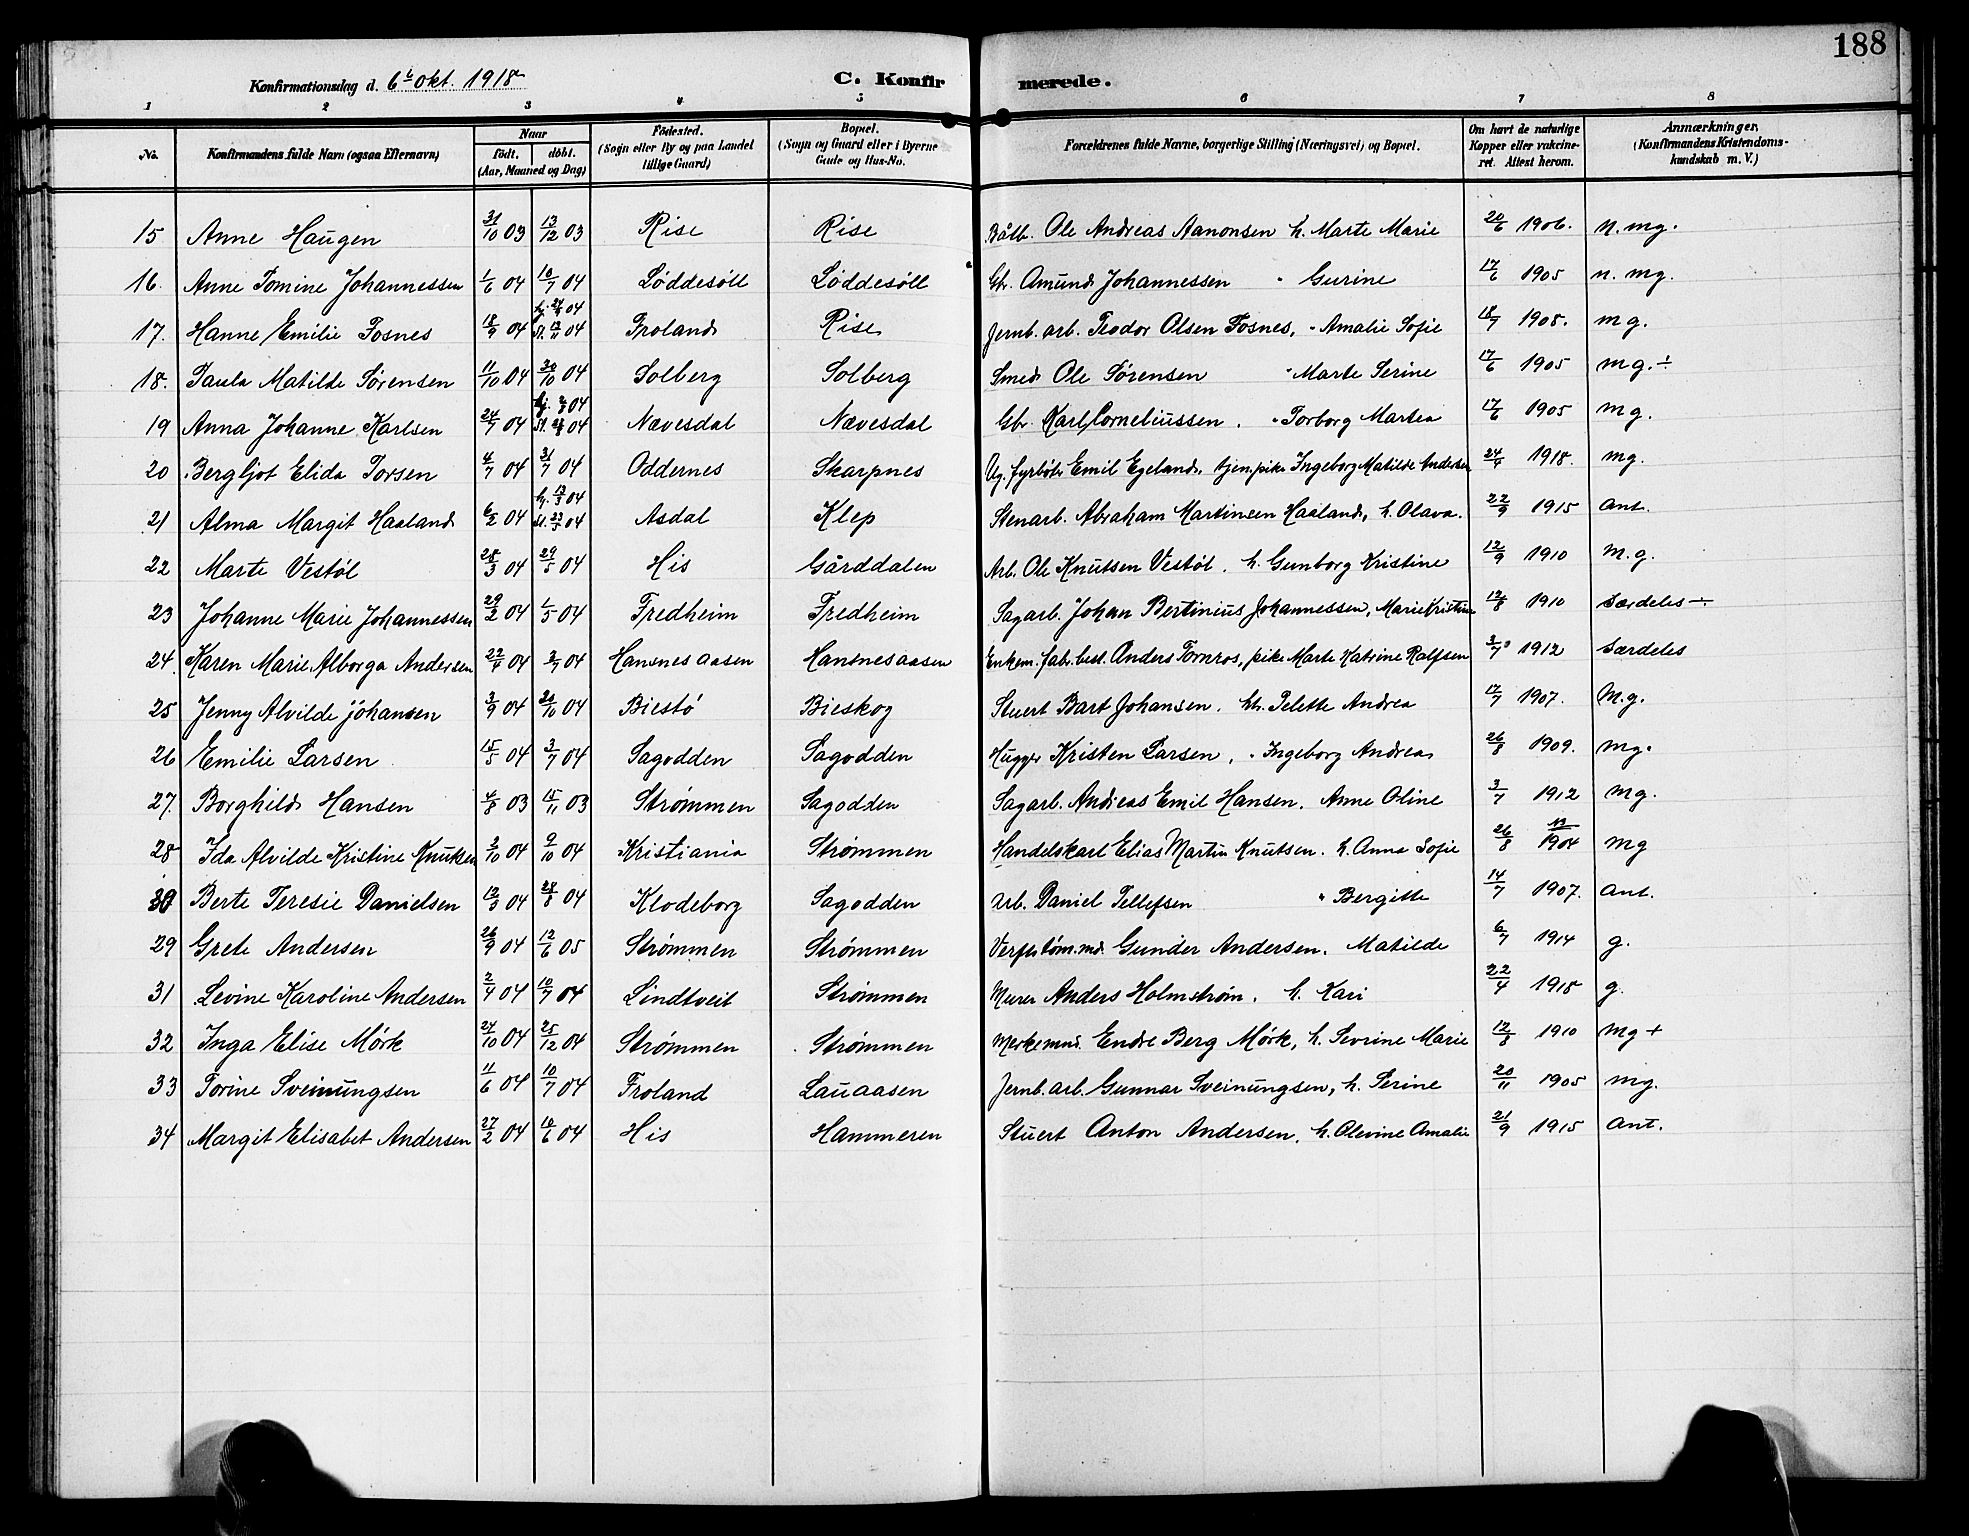 188
Konfirmationsdag d. 6te Okt. 1918
C. Konfirmerede.
1 2 3 4 5 6 7 8
No. Konfirmandens fulde Navn (ogsaa Efternavn) Naar født. døbt. (Aar, Maaned og Dag) Fødested. (Sogn eller By og paa Landet tillige Gaard) Bopæl. (Sogn og Gaard eller i Byerne Gade og Hus-No. Forældrenes fulde Navne, borgerlige Stilling (Næringsvei) og Bopæl. Om havt de naturlige Kopper eller vakcineret. Attest herom. Anmærkninger. (Konfirmandens Kristendomskundskab m. V.)
15 Anne Haugen 31/10 03 13/12 03 Rise Rise Båtb. Ole Andreas Aanonsen h. Marte Marie 20/6 1906. n. mg.
16. Anne Tomine Johannessen 1/6 04 10/7 04 Løddesøll Løddesøll Gbr. Amund Johannessen " Gurine 17/6 1905 n. mg.
17. Hanne Emilie Fosnes 18/9 04 04 st. 13/11 04 Froland Rise Jernb. arb. Teodor Olsen Fosnes, " Amalie Sofie 18/7 1908. mg.
18. Paula Matilde Sørensen 11/10 04 30/10 04 Solberg Solberg Smed Ole Sørensen " Marte Serine 17/6 1905 mg. ÷
19 Anna Johanne Karlsen 24/7 04 04 st. 04 Nævesdal Nævesdal Gbr. Karl Corneliussen. " Torborg Martea 17/6 1905 mg.
20 Bergljot Elida Torsen 4/7 04 31/7 04 Oddernes Skarpnes Ug. fyrbøter Emil Egeland, tjen.pike Ingeborg Matilde Andersen 24/4 1918. mg.
21 Alma Margit Haaland 6/2 04 hj. 13/3 04 st. 04 Asdal Klep Stenarb. Abraham Martinsen Haaland, h. Olava. 22/9 1915 ant.
22 Marte Vestøl 28/3 04 29/5 04 His Gårddalen Arb. Ole Knutsen Vestøl. h. Gunborg Kristine 12/9 1910 M.g.
23 Johanne Marie Johannessen 29/2 04 1/5 04 Fredheim Fredheim Sagarb. Johan Bertinius Johannessen, Marie Kristine 12/8 1910 særdeles ÷
24. Karen Marie Alborga Andersen 22/4 04 3/7 04 Hansnesaasen Hansnesaasen Enkem. fab. best. Anders Tornros, pike Marte Katrine Rolfsen 3/7 1912 særdeles
25 Jenny Alvilde Johansen 3/9 04 20/10 04 Biestø Bieskog Stuert Bart Johansen. htr. Telette Andrea 17/7 1907. M.g.
26 Emilie Larsen 15/5 04 3/7 04 Sagodden Sagodden Hugger Kristen Larsen, " Ingeborg Andrea 26/8 1909. mg.
27. Borghild Hansen 4/8 03 15/11 03 Strømmen Sagodden Sagarb. Andreas Emil Hansen. Anne Oline 3/7 1912 mg.
28 Ida Alvilde Kristine Knutsen 2/10 04 9/10 04 Kristiania Strømmen Handelskarl Elias Martin Knutsen. h. Anna Sofie 26/8 1904 mg
30 Berte Teresie Danielsen 13/3 04 28/8 04 Klodeborg Sagodden Arb. Daniel Tellefsen " Bergitte 14/7 1907. ant.
29 Grete Andersen 26/9 04 12/6 05 Strømmen Strømmen Verfts tøm.md. Gunder Andersen. Matilde 6/7 1914 g.
31 Levine Karoline Andersen 2/4 04 10/7 04 Lindtveit Strømmen Murer Anders Holmstrøm. h. Kari 22/4 1918 g.
32 Inga Elise Mørk 24/10 04 25/12 04 Strømmen Strømmen Merkemnd. Endre Berg Mørk, h. Sevrine Marie 12/8 1910 mg +
33 Torine Sveinungsen 11/6 04 10/7 04 Froland Lauaasen Jernb. arb. Gunnar Sveinungsen, h. Serine 20/11 1905 mg.
34 Margit Elisabet Andersen 27/2 04 16/6 04 His Hammeren Stuert Anton Andersen, h. Olevine Amalie 21/9 1915 ant.